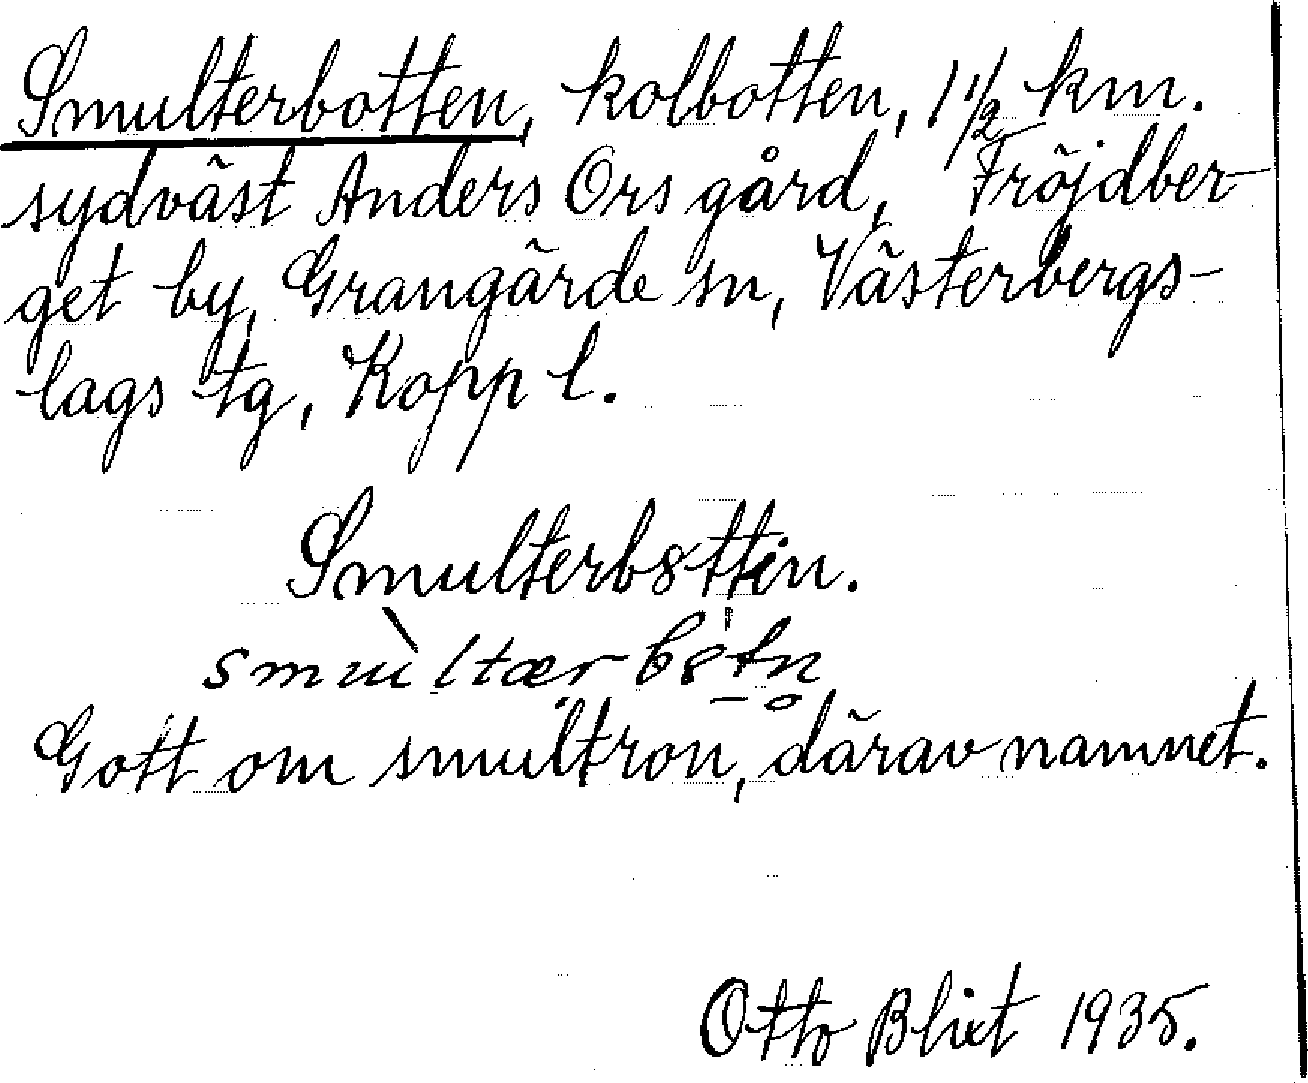 Smulterbotten, kolbotten, 1 1/2 km.
sydväst Anders Ors gård, Fröjdber-
get by, Grangärde sn, Västerbergs-
lags tg, Kopp l.
Smulterb8ttin.
Gott om smultron, därav namnet.
Otto Blixt 1935.